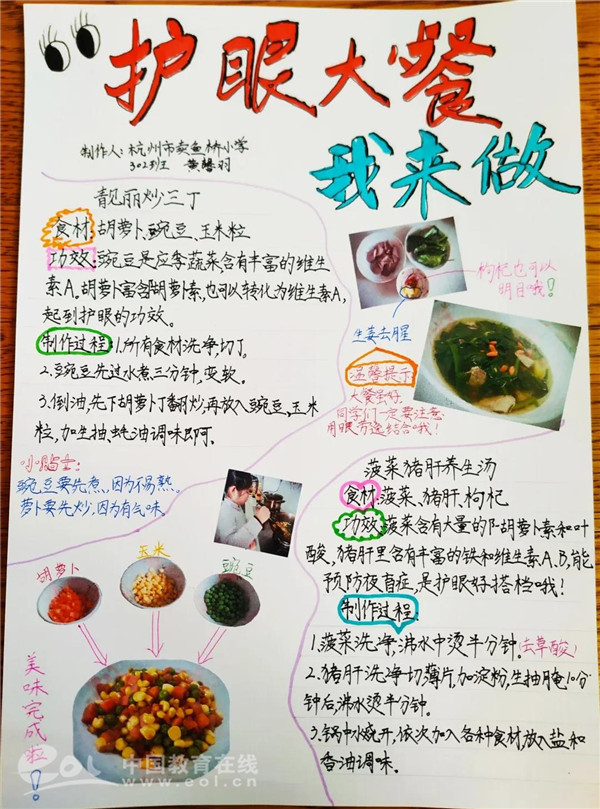 护眼大餐
我来做
制作人:杭州市卖鱼桥小学
302班 黄馨羽
靓丽炒三丁
食材:胡萝卜、豌豆、玉米粒
功效:豌豆是应季蔬菜,含有丰富的维生
素A。胡萝卜富含胡萝素,也可以转化为维生素A,
起到护眼的功效。
制作过程:1.所有食材洗净,切丁。
2.豌豆先过水煮三分钟,变软。
3.倒油,先下胡萝卜丁翻炒,再放入豌豆、玉米
粒,加生抽、蚝油调味即可。
小贴士:
豌豆要先煮、因为不易熟。
萝卜要先炒,因为有气味。
枸杞也可以
明目哦!
生姜去腥
温馨提示:
大餐虽好,
同学们一定要注意
用眼劳逸结合哦!
菠菜猪肝养生汤
食材:菠菜、猪肝、枸杞
功效:菠菜含有大量的β-胡萝卜素和叶
酸,猪肝里含有丰富的铁和维生素A、B,能
预防夜盲症,是护眼好搭档哦!
制作过程:
1.菠菜洗净,沸水中烫半分钟。(去草酸)
2.猪肝洗净切薄片,加淀粉,生抽月奄10分
钟后,沸水烫半分钟。
3.锅中水烧开,依次加入各种食材,放入盐和
香油调味。
胡萝卜
玉米
豌豆
美味完成啦!
eol 中国教育在线
www.eol.cn